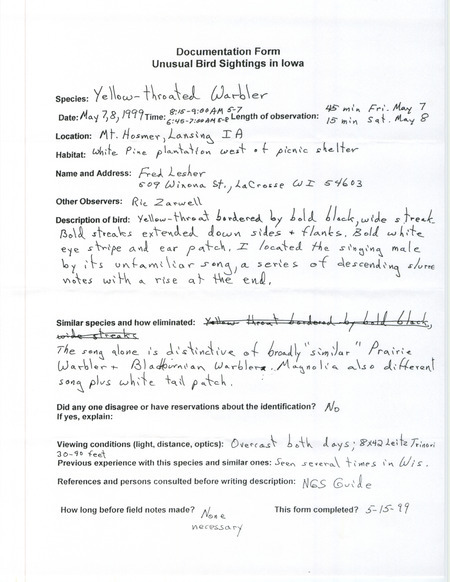 Documentation Form
Unusual Bird Sightings in Iowa
Species: Yellow-throated Warbler
Date: May 7,8, 1999 Time: 8:15-9:00AM 5-7 Length of observation: 45 min Fri. May 7
6:45-7:00AM 5-8 15 min Sat. May 8
Location: Mt. Hosmer, Lansing IA
Habitat: White Pine plantation west of picnic shelter
Name and Address: Fred Lesher
509 Winona St., LaCrosse WI 54603
Other Observers: Ric Zarwell
Description of bird: Yellow-throat bordered by bold black, wide streak
Bold streaks extended down sides + flanks. Bold white
eye stripe and ear patch. I located the singing male
by its unfamiliar song, a series of descending slurred
notes with a rise at the end.
Similar species and how eliminated: Yellow throat bordered by bold black,
wide streaks
The song alone is distinctive of broadly "similar" Prairie
Warbler + Blackburnian Warblers. Magnolia also different
song plus white tail patch.
Did any one disagree or have reservations about the identification? No
If yes, explain:
Viewing conditions (light, distance, optics): Overcast both days; 8x42 Leitz Trinovi
30-90 feet
Previous experience with this species and similar ones: Seen several times in Wis.
References and persons consulted before writing description: NGS Guide
How long before field notes made? None This form completed? 5-15-99
necessary